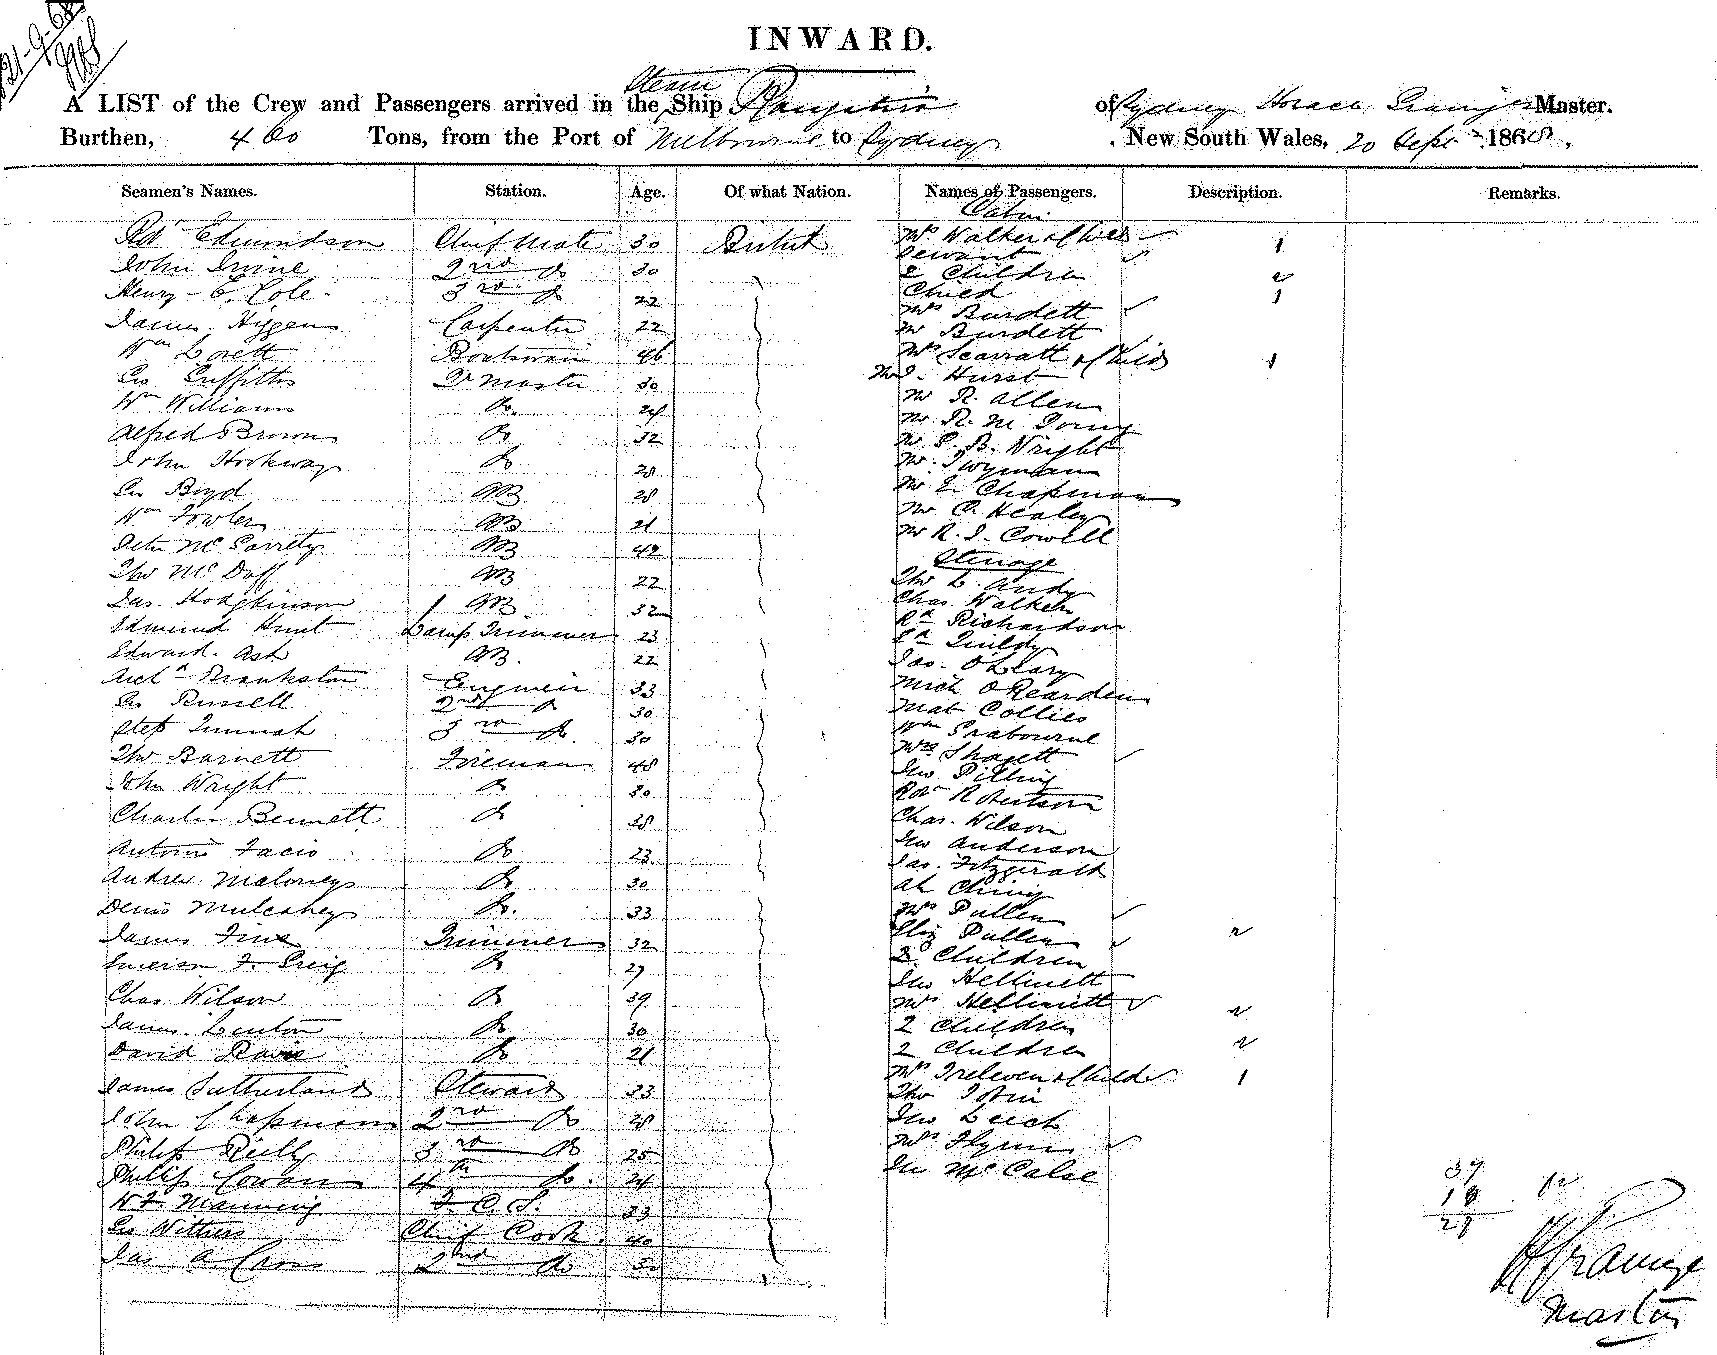 21-9-68
INWARD.
A LIST of the Crew and Passengers arrived in the Steam Ship Rangatira of Sydney Horace Grainger Master.
Burthen, 460 Tons, from the Port of Melbourne to Sydney, New South Wales, 20 Sept 1868.
Seamen's Names. Station. Age. Of what Nation. Names of Passengers. Description. Remarks.
Cabin
Robt Edmundson Chief Mate 30 British Mrs Walker & Child 1
Servant
John Irvine 2nd Do 30 2 Children 2
Henry E. Cole 3rd Do 22 Child 1
Mrs Burdett
James Higgens Carpenter 22 Mr Burdett
Wm Lovett Boatswain 46 Mrs Scarratt & Child 1
Geo Griffiths Qr Master 30 Hurst
Wm Williams Do. 24 Mr R. Allen
Alfred Brown Do 32 Mr R. M
John Hookway Do 28 Mr P. B. Wright
Mr Twyman
Geo Boyd AB 28 Mr E. Chapman
Wm Fowler AB 21 Mr C. Healey
Peter McGarrety AB 42 Mr R. J. Cowell
Steerage
Tho McDoff AB 22 Tho L. Andy
Jas. Hodgkinson AB 32 Chas Walker
Edmund Hunt Lamp Trimmer 23 Rd Richardson
Edward Ash AB. 22 Ed Quildy
Jas. O'Leary
Archd Mankston Engineer 33 Mich O'Rearden
Geo Russell 2nd Do 30 Mat Collies
Step Dunnah 3rd Do. 30 Wm Grabourne
Tho Barnett Fireman 48 Mrs Shapett
John Wright Do 30 Jno Pilling
Robt Robertson
Charles Bennett Do 38 Chas. Wilson
Antonio Facio Do 23 Jno Anderson
Jas. Fitzgerald
Andrew Maloney Do 30 Ah Ching
Denis Mulcahey Do. 33 Mrs Pullen
James Fine Trimmer 32 Eliz Pullen 2
Emerson F. Greig Do 27 2 Children
Jno Hellinett
Chas Wilson Do 39 Mrs Hellinett 2
James Lenton Do 30 2 Children
David Davis Do 21 2 Children 2
James Sutherland Steward 33 Mrs Treleven & Child 1
Tho Tobin
John Chapman 2nd Do 28 Jno Leich
Philip Reilly 3rd Do 25 Mrs Flynn
Philip Cowan 4th Do. 24 Jn McCalse
W F. Manning F. C. S. 23
Geo Withers Chief Cook 40
Jas A Cross 2nd Do 30
37
10
27
H Grainger
Master